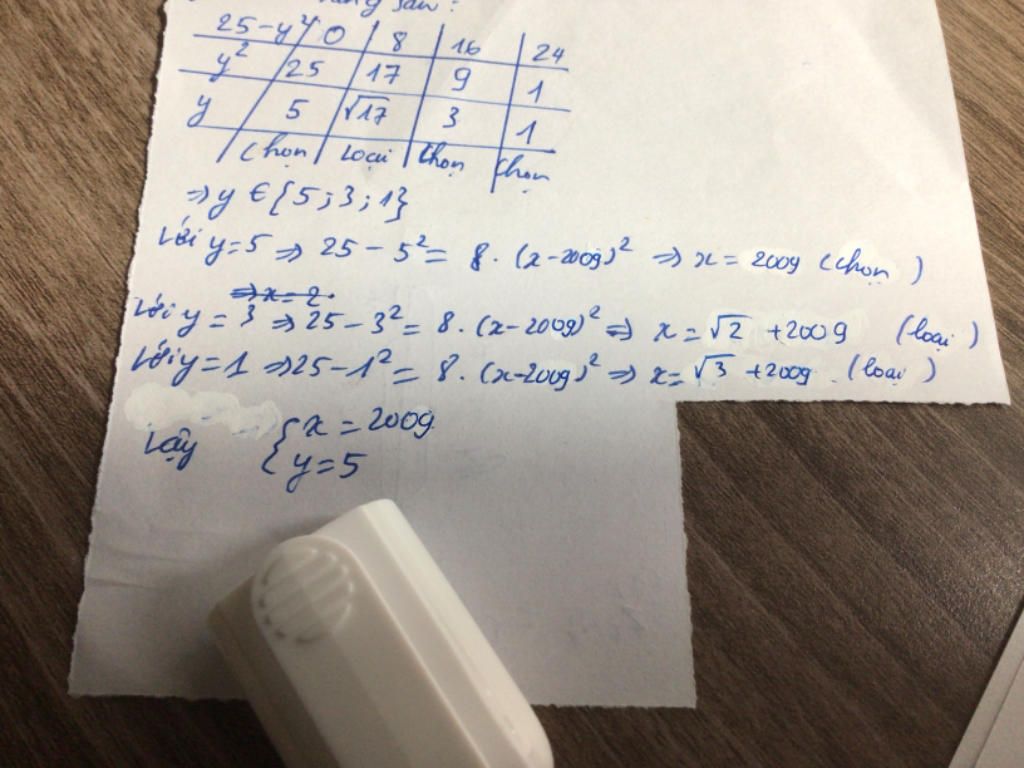 sau:
25-y² 0 8 16 24
y² 25 17 9 1
y 5 √17 3 1
Chọn loại Chọn Chọn
⇒ y ∈ {5; 3; 1}
Với y=5 ⇒ 25 - 5² = 8. (x-2009)² ⇒ x = 2009 (chọn)
⇒ x = 2.
Với y = 3 ⇒ 25 - 3² = 8. (x-2009)² ⇒ x = √2 + 2009 (loại)
Với y = 1 ⇒ 25 - 1² = 8. (x-2009)² ⇒ x = √3 + 2009. (loại)
Vậy { x = 2009
y = 5